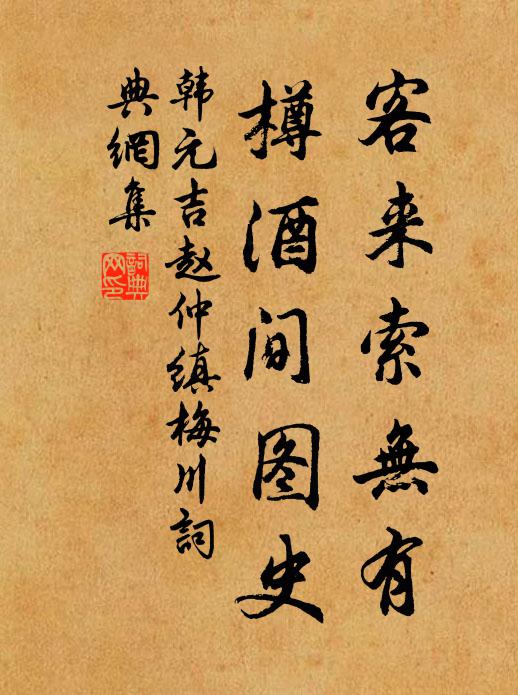 客来索無有
樽酒间图史
韩元吉赵仲缜梅川詞
典網集
詞典網印